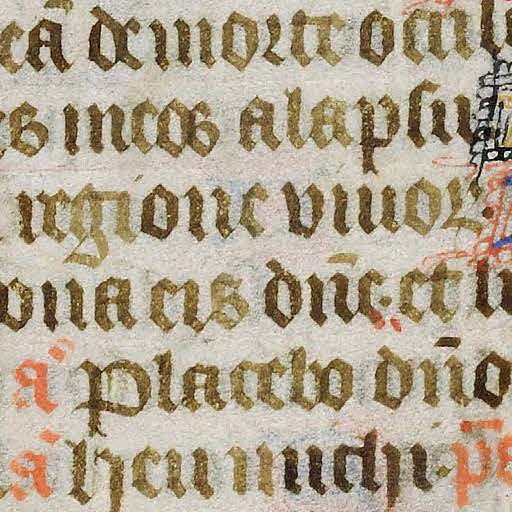 eā de morte ocul
es meos a lapsu
regione viuoꝝ.
ona eis dn̄e. et l
a placebo dn̄o
a heu michi. p̄s